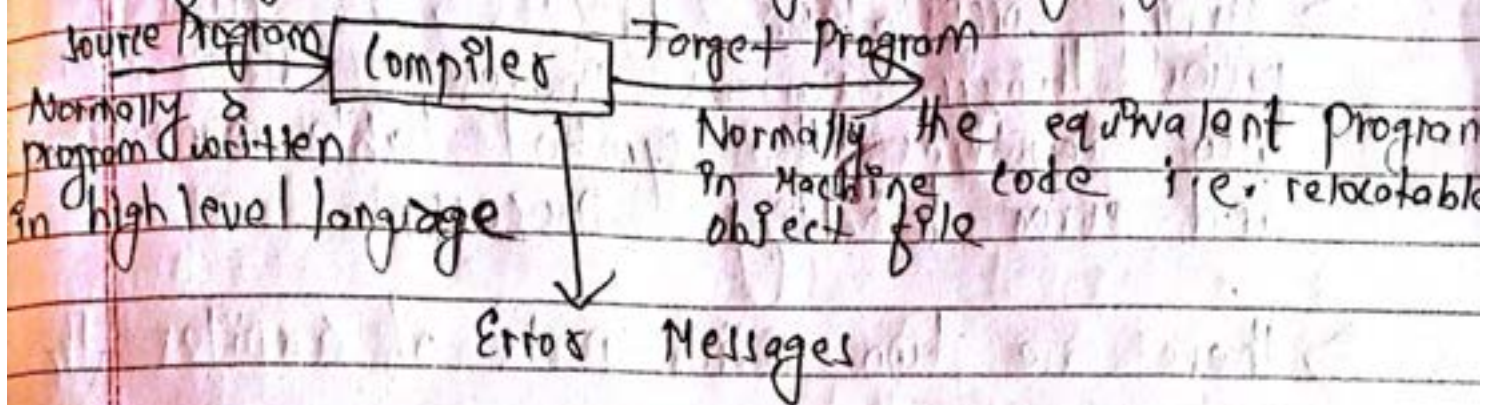 Source Program
Compiler
Target Program
Normally a
program written
in high level language
Normally the equivalent program
in Machine code i.e. relocatable
object file
Error Messages